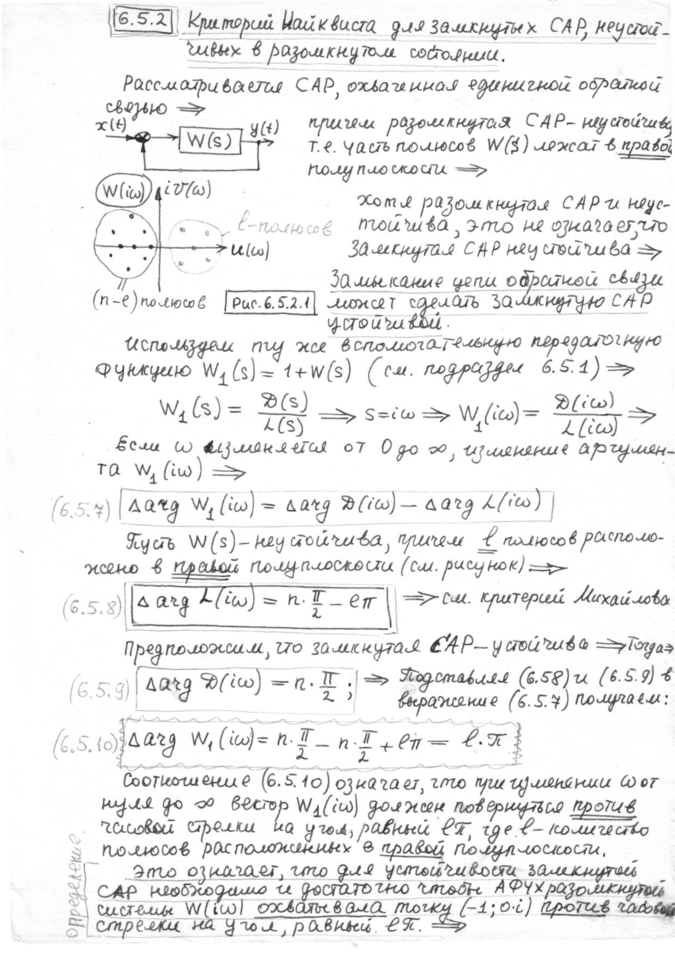 6.5.2 Критерий Найквиста для замкнутых САР, неустой-
чивых в разомкнутом состоянии.
Рассматривается САР, охваченная единичной обратной
связью ⟹
x(t) W(s) y(t)
причем разомкнутая САР – неустойчива,
т.е. часть полюсов W(s) лежат в правой
полуплоскости ⟹
W(iω) iV(ω)
l-полюсов
u(ω)
(n-l) полюсов Рис. 6.5.2.1
хотя разомкнутая САР и неус-
тойчива, это не означает, что
замкнутая САР неустойчива ⟹
Замыкание цепи обратной связи
может сделать замкнутую САР
устойчивой.
Используем ту же вспомогательную передаточную
функцию W₁(s) = 1+W(s) (см. подраздел 6.5.1) ⟹
W₁(s) = D(s)/L(s) ⟹ s=iω ⟹ W₁(iω) = D(iω)/L(iω) ⟹
Если ω изменяется от 0 до ∞, изменение аргумен-
та W₁(iω) ⟹
(6.5.7) Δarg W₁(iω) = Δarg D(iω) – Δarg L(iω)
Пусть W(s) – неустойчива, причем l полюсов располо-
жено в правой полуплоскости (см. рисунок) ⟹
(6.5.8) Δarg L(iω) = n·π/2 – lπ ⟹ см. критерий Михайлова
Предположим, что замкнутая САР – устойчива ⟹ Тогда ⟹
(6.5.9) Δarg D(iω) = n·π/2 ; ⟹ Подставляя (6.58) и (6.5.9) в
выражение (6.5.7) получаем:
(6.5.10) Δarg W₁(iω) = n·π/2 – n·π/2 + lπ = l·π
Соотношение (6.5.10) означает, что при изменении ω от
нуля до ∞ вектор W₁(iω) должен повернуться против
часовой стрелки на угол, равный lπ, где l – количество
полюсов расположенных в правой полуплоскости.
Определение.
Это означает, что для устойчивости замкнутой
САР необходимо и достаточно чтобы АФЧХ разомкнутой
системы W(iω) охватывала точку (-1; 0·i) против часовой
стрелки на угол, равный lπ. ⟹